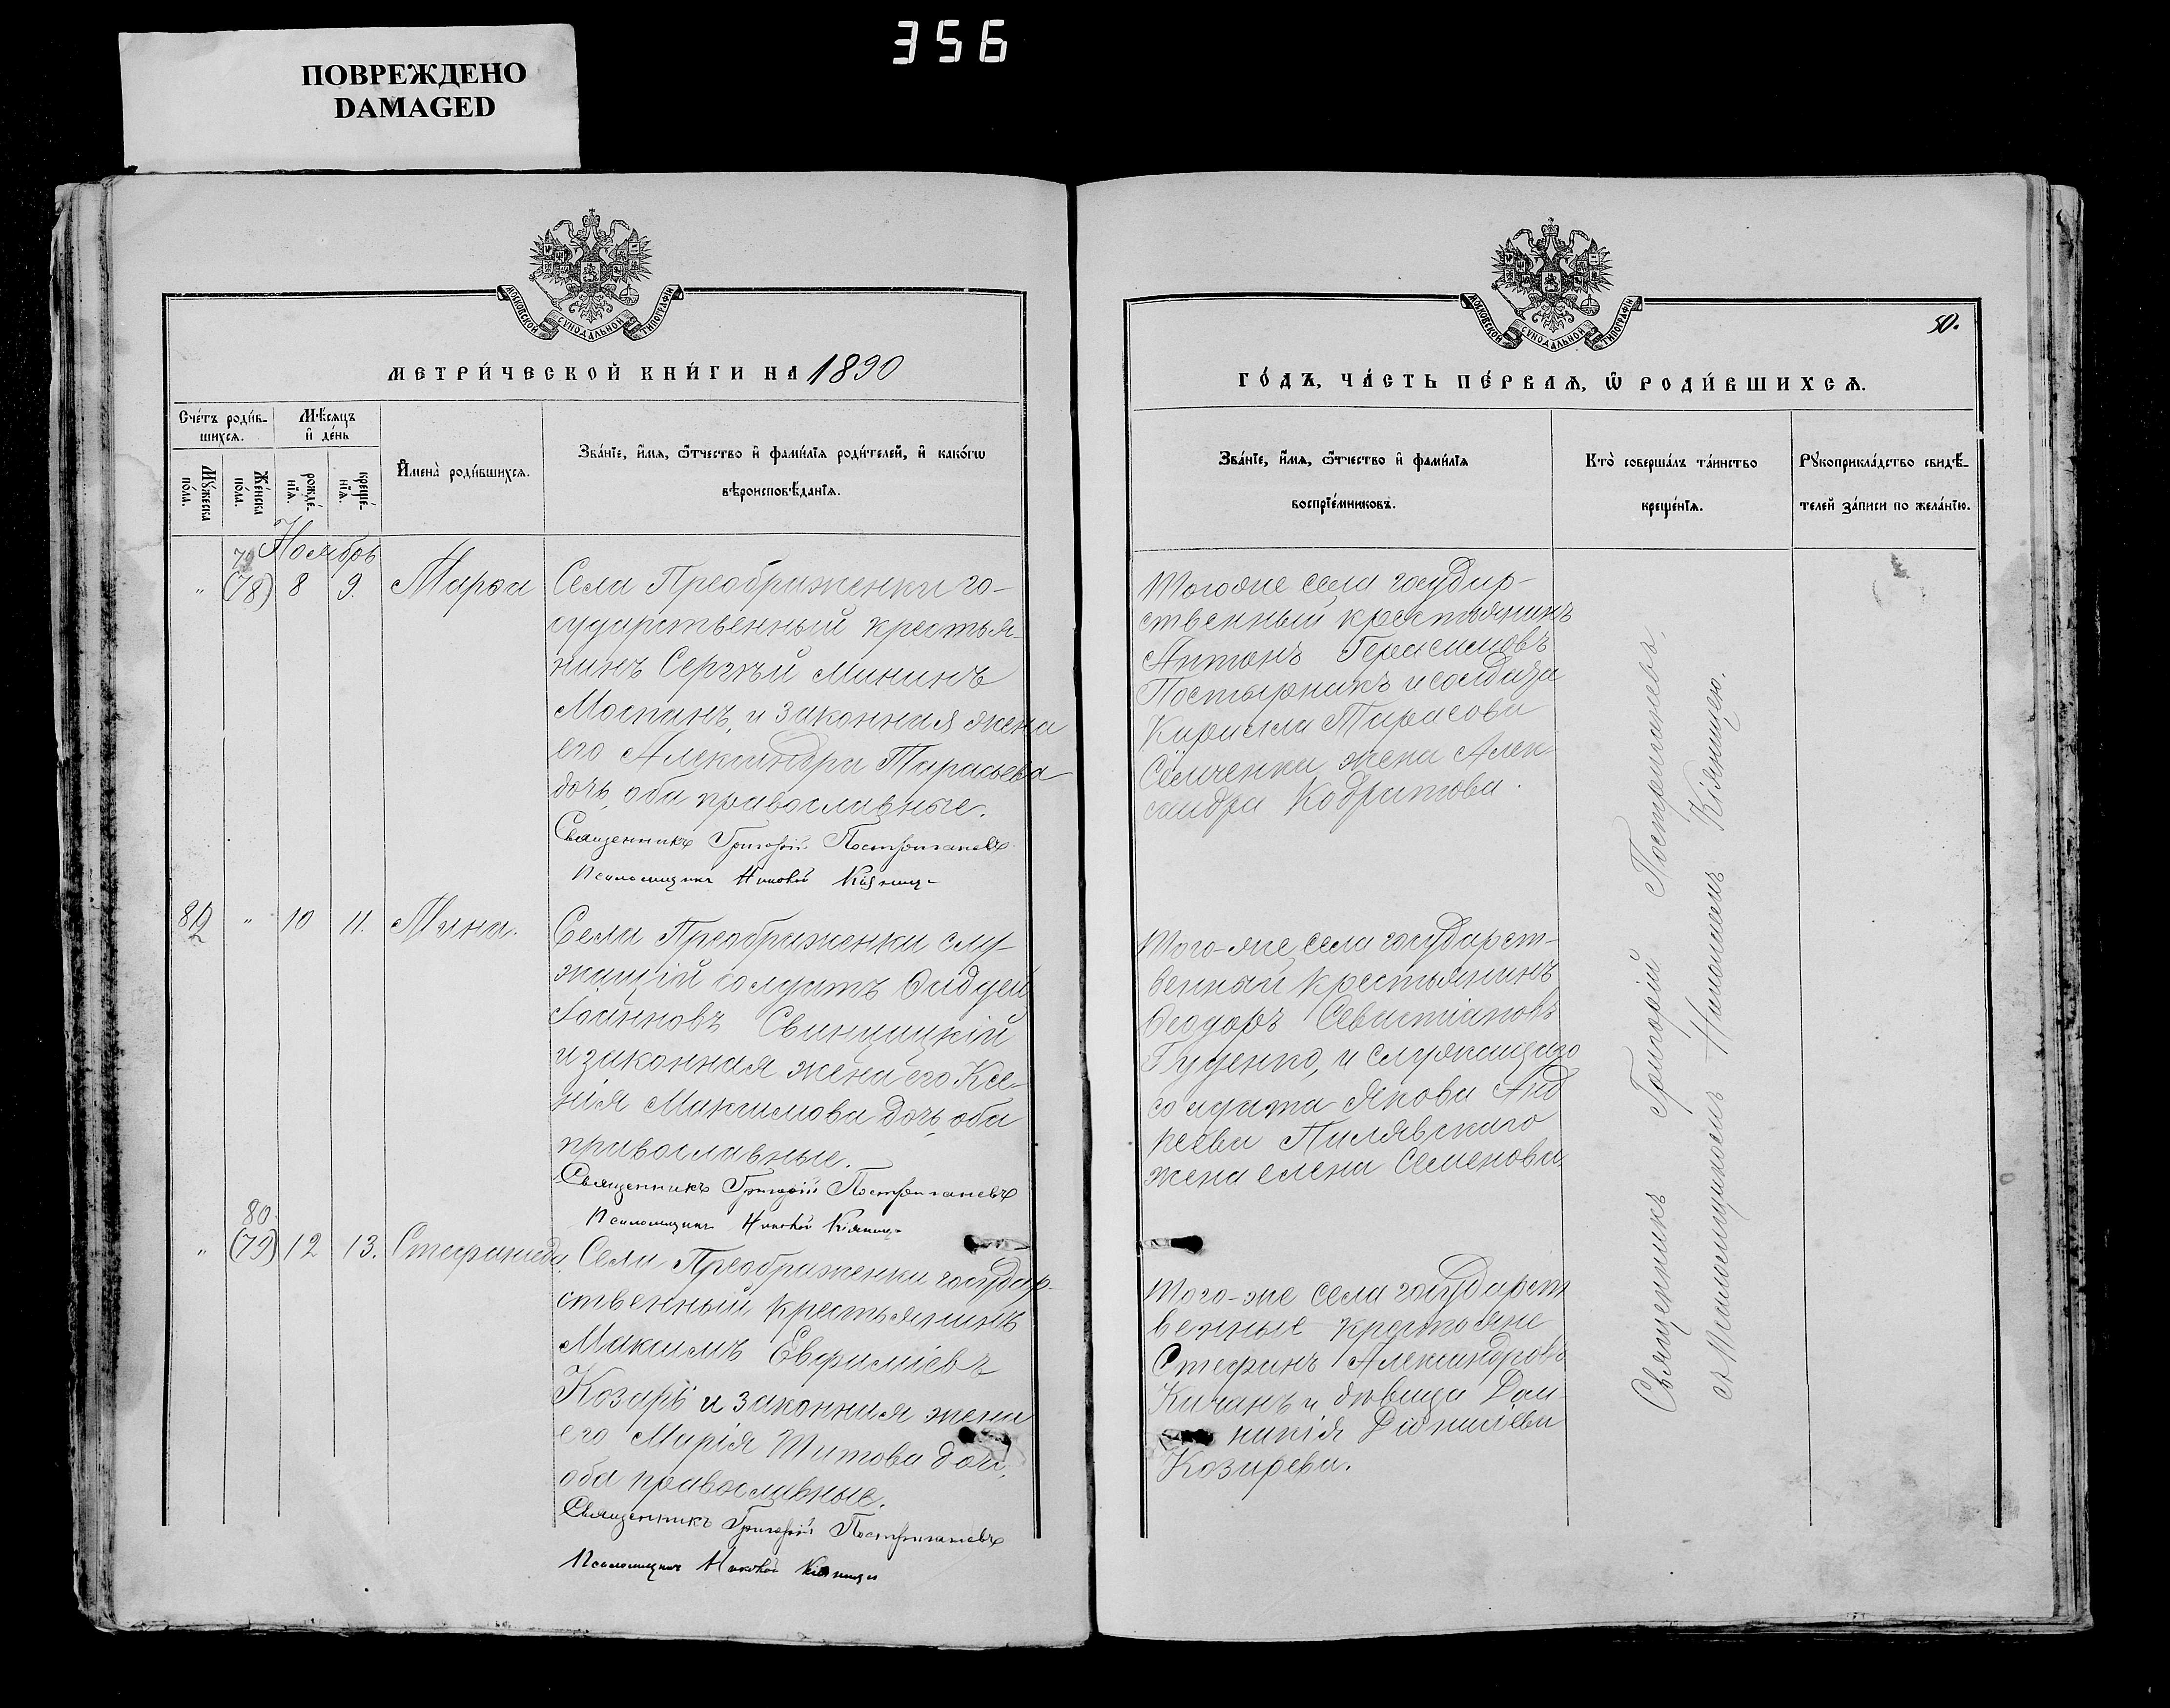 356
ПОВРЕЖДЕНО
DAMAGED
МОСКОВСКОЙ СѴНОДАЛЬНОЙ ТИПОГРАФІИ
МЕТРИ́ЧЕСКОЙ КНИ́ГИ НА 1890
Сче́тъ роди́в-
шихсѧ.
Мѣ́сѧцъ
и҆ де́нь
Мꙋ́жеска
по́ла.
Же́нска
по́ла.
рожде́-
нїѧ.
креще́-
нїѧ.
И҆мена̀ роди́вшихсѧ.
Зва́нїе, и҆́мѧ, ѻ҆́тчество и҆ фами́лїѧ роди́телей, и҆ како́гѡ
вѣроисповѣ́данїѧ.
Ноябрь
79
" (78) 8 9. Марѳа
Села Преображенки го-
сударственный крестья-
нинъ Сергѣй Мининъ
Моспанъ, и законная жена
его Александра Тарасьева
дочь, оба православные.
Священникъ Григорій Постригачевъ
Псаломщикъ Николай Кіяница
82 " 10 11. Мина.
Села Преображенки слу-
жащій солдатъ
Іоанновъ Свинцицкій
и законная жена его Ксе-
нія Максимова дочь, оба
православные.
Священникъ Григорій Постригачевъ
Псаломщикъ Николай Кіяница
80
" (79) 12 13. Стефанида.
Села Преображенки государ-
ственный крестьянинъ
Максимъ Евфиміевъ
Козарь и законная жена
его Марія Титова дочь,
оба православные.
Священникъ Григорій Постригачевъ
Псаломщикъ Николай Кіяница
МОСКОВСКОЙ СѴНОДАЛЬНОЙ ТИПОГРАФІИ
50.
ГО́ДЪ, ЧА́СТЬ ПЕ́РВАѦ, Ѡ҆ РОДИ́ВШИХСѦ.
Зва́нїе, и҆́мѧ, ѻ҆́тчество и҆ фами́лїѧ
воспрїе́мниковъ.
Кто̀ соверша́лъ та́инство
креще́нїѧ.
Рꙋкоприкла́дство свидѣ́-
телей за́писи по жела́нїю.
Того же села государ-
ственный крестьянинъ
Антонъ Герасимовъ
и солдата
Кирилла Тарасова
жена Алек
сандра Кодратова.
Того-же села государст-
венный крестьянинъ
Ѳеодоръ Севастіановъ
Гуценко, и служащаго
солдата Якова Анд
реева Пилявскаго
жена Елена Семенова.
Того-же села государст
венные крестьяне
Стефанъ Александровъ
и дѣвица Дом
никія
Козарева.
Священникъ Григорій Постригачевъ,
съ Псаломщикомъ Николаемъ Кіяницею.